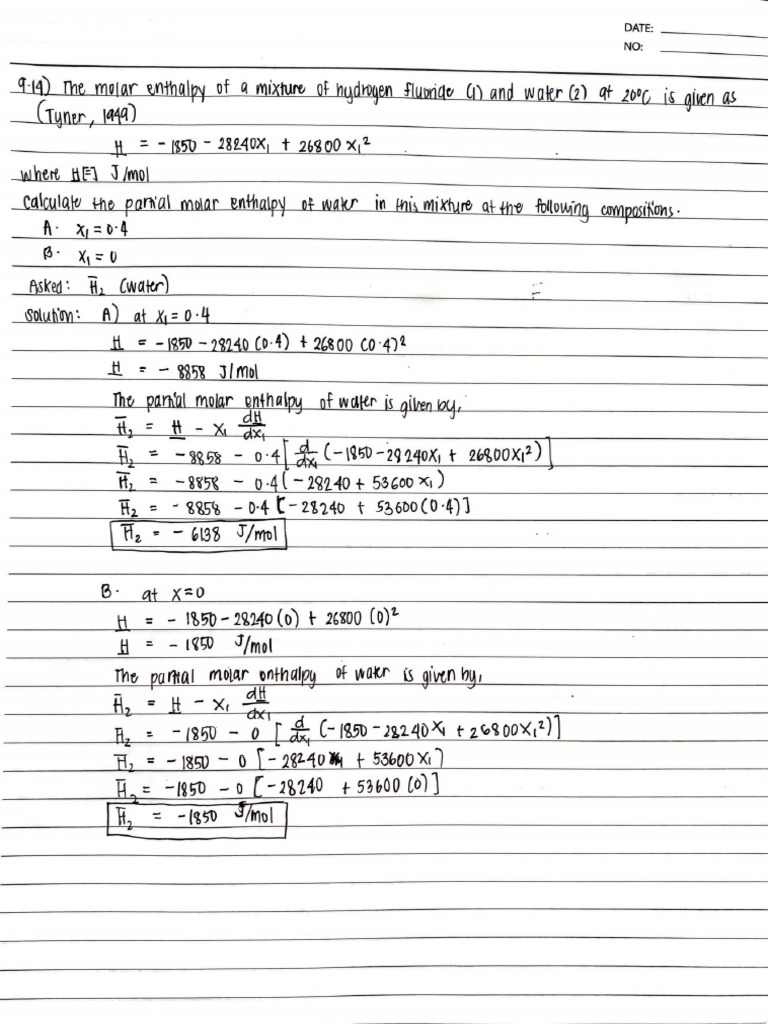 DATE:
NO:
9.14) The molar enthalpy of a mixture of hydrogen fluoride (1) and water (2) at 20°C is given as
(Tyner, 1949)
H = -1850 - 28240x₁ + 26800x₁²
where H[=] J/mol
Calculate the partial molar enthalpy of water in this mixture at the following compositions.
A. x₁ = 0.4
B. x₁ = 0
Asked: H̄₂ (water)
Solution: A) at x₁ = 0.4
H = -1850 - 28240 (0.4) + 26800 (0.4)²
H = -8858 J/mol
The partial molar enthalpy of water is given by,
H̄₂ = H - x₁ dH/dx₁
H̄₂ = -8858 - 0.4 [d/dx₁ (-1850 - 28240x₁ + 26800x₁²)]
H̄₂ = -8858 - 0.4 (-28240 + 53600x₁)
H̄₂ = -8858 - 0.4 [-28240 + 53600(0.4)]
H̄₂ = -6138 J/mol
B. at x=0
H = -1850 - 28240 (0) + 26800 (0)²
H = -1850 J/mol
The partial molar enthalpy of water is given by,
H̄₂ = H - x₁ dH/dx₁
H̄₂ = -1850 - 0 [d/dx₁ (-1850 - 28240x₁ + 26800x₁²)]
H̄₂ = -1850 - 0 [-28240 + 53600x₁]
H̄₂ = -1850 - 0 [-28240 + 53600 (0)]
H̄₂ = -1850 J/mol